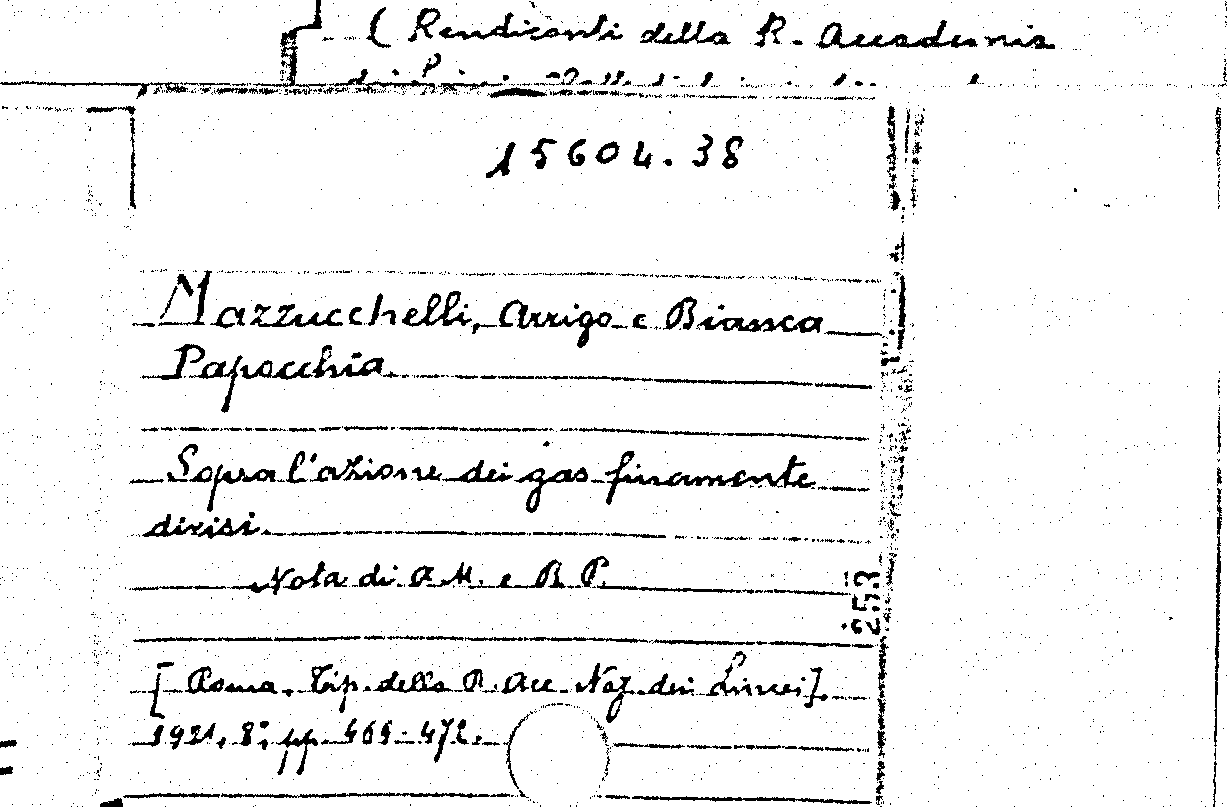 ( Rendiconti della R. Accademia
15604.38
Mazzucchelli, Arrigo e Bianca
Papocchia.
Sopra l'azione dei gas finamente
divisi.
Nota di A. M. e B. P.
253
[Roma. Tip. della R. Acc. Naz. dei Lincei].
1921, 8°, pp.